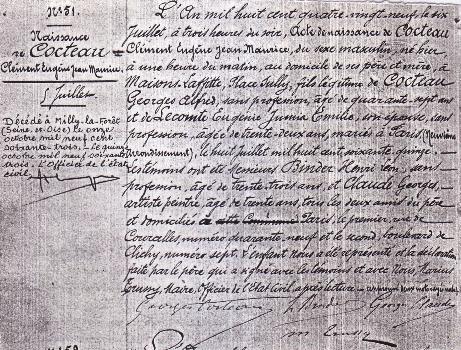 N° 51.
Naissance
de Cocteau
Clément Eugène Jean Maurice.
5 Juillet
Décédé à Milly-la-Forêt
(Seine-et-Oise) le onze
octobre mil neuf cent
soixante-trois. Le quinze
octobre mil neuf soixante
trois. L'Officier de l'état
civil.
L'An mil huit cent quatre-vingt-neuf, le six
Juillet, à trois heures du soir, Acte de naissance de Cocteau
Clément Eugène Jean Maurice, du sexe masculin, né hier
à une heure du matin, au domicile de ses père et mère, à
Maisons-Laffitte, Place Sully, fils légitime de Cocteau
Georges Alfred, sans profession, âgé de quarante-sept ans
et de Lecomte Eugénie Junia Emilie, son épouse, sans
profession, âgée de trente-deux ans, mariés à Paris (Neuvième
Arrondisement), le huit Juillet mil huit cent soixante-quinze.
Les témoins ont été Messieurs Binder Henri, sans
profession, âgé de trente-trois ans, et Claude Georges,
artiste peintre, âgé de trente ans, tous les deux amis du père
et domiciliés à Paris, le premier, rue de
Courcelles, numéro quarante-neuf et le second, boulevard de
Clichy, numéro sept. L'enfant nous a été représenté et la déclaration
faite par le père qui a signé avec les témoins et avec Nous, Marius
Maire, Officier de l'Etat Civil, après lecture.
Georges Cocteau Georges Claude